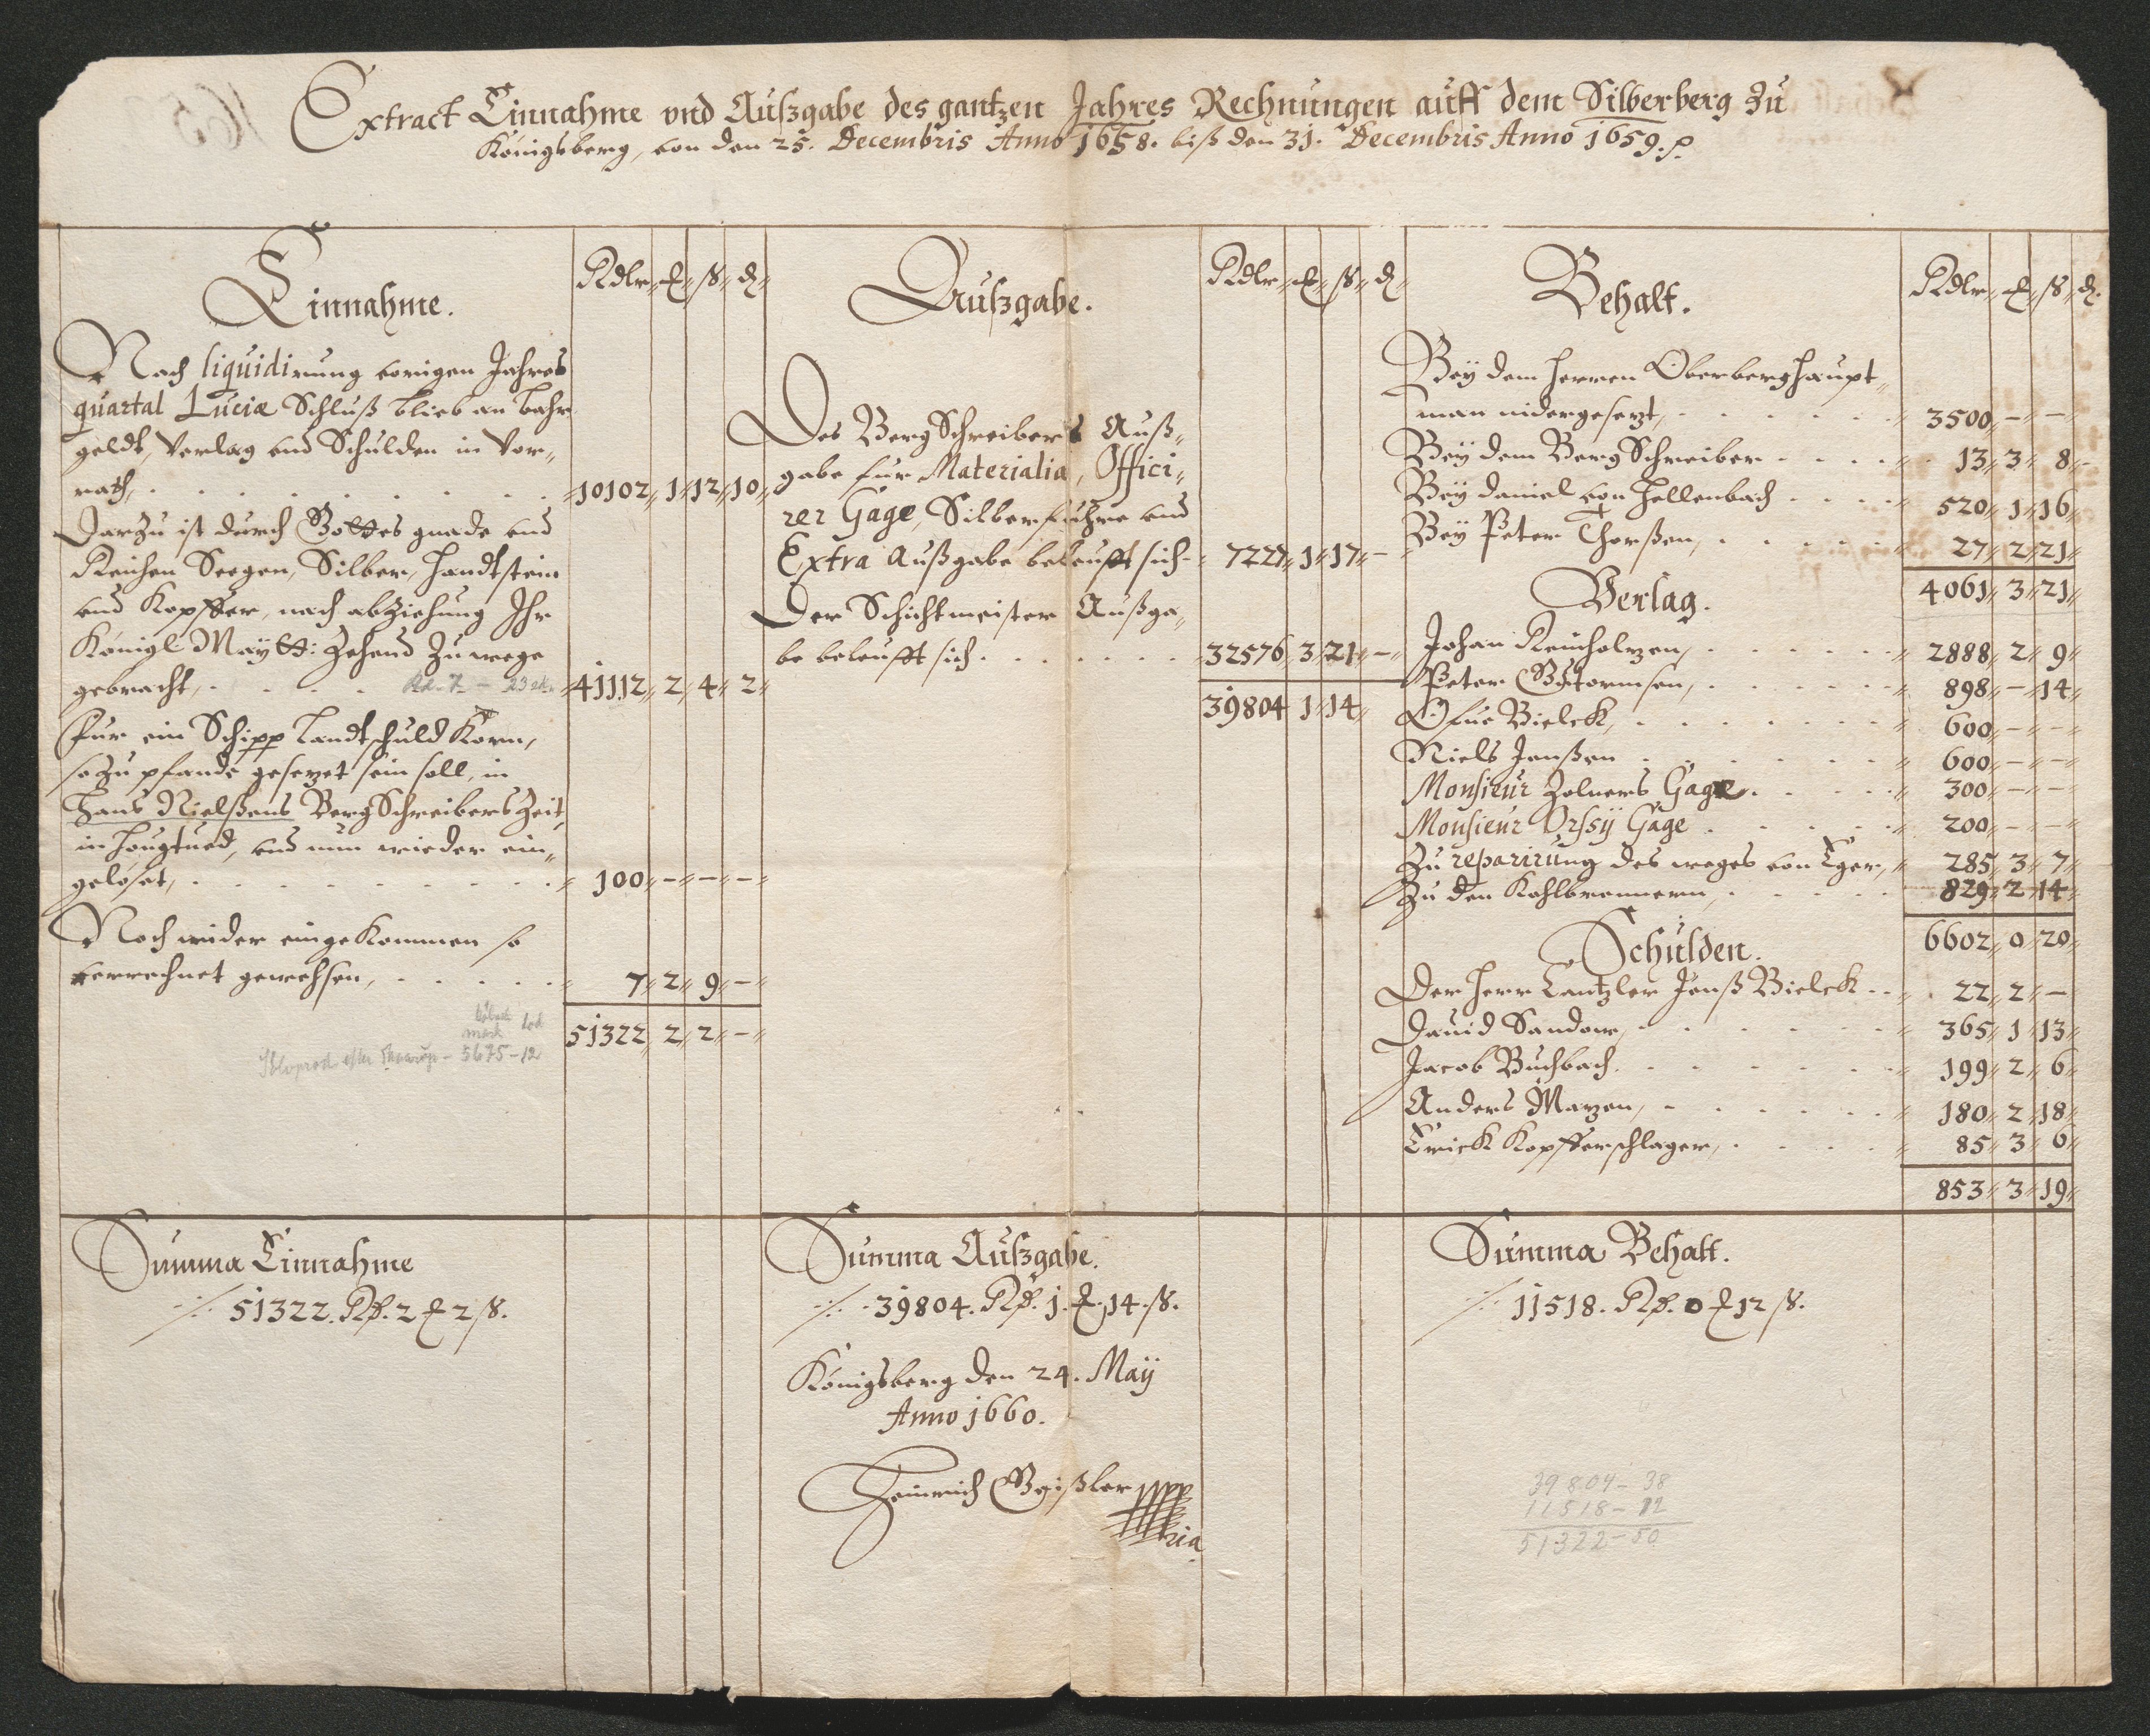 Extract Einnahme vnd Außgabe des gantzen Jahres Rechnungen auff dem Silberberg zu
Königsberg, von den 25. Decembris Anno 1658. biß den 31. Decembris Anno 1659.
Einnahme.
Rdlr
Nach liquidirung vorigen Jahres
quartal Luciæ Schluß blieb an bahr
geldt, Verlag vnd Schulden in Vor„
rath, 10102 1 12 10
Darzu ist durch Gottes gnade vnd
Reichen Seegen, Silber, Handtstein
vnd Kopffer, nach abziehung Ihr
Königl Maytt: Zehend Zu wege
gebracht, 41112 2 4 2
Fur ein Schipp Landtschuld Korn,
so zu pfande gesezet sein soll, in
Hans Nielßens BergSchreibers Zeit,
in Hougtued, vnd nun wieder ein„
gelöset, 100 - - -
Noch wider eingekommen so
verrechnet gewehsen, 7 2 9 -
51322 2 2 -
lod
mark
5675-12
Außgabe.
Rdlr
Des BergSchreibers Auß„
gabe fur Materialia, Offici„
rer Gage, Silberfuhre vnd
Extra Außgabe beleufft sich 7227 1 17 -
Der Schichtmeister Außga„
be beleufft sich 32576 3 21 -
39804 1 14
Behalt.
Rdlr
Bey dem Herren Oberberghaupt„
man nidergesezt, 3500 - -
Bey dem BergSchreiber 13 3 8
Bey Daniel von Hellenbach 520 1 16
Bey Peter Thorßen, 27 2 21
4061 3 21
Verlag.
Johan Reinholzen, 2888 2 9
Peter Gutormsen, 898 - 14
Ofue Bielck, 600 - -
Niels Janßen 600 - -
Monsieur Zolners Gage 300 - -
Monsieur Vrsÿ Gage 200 - -
Zu reparirung des weges von Eger, 285 3 7
Zu den Kohlbrennern, 829 2 14
6602 0 20
Schulden.
Der Herr Cantzler Jenß Bielck 22 2 -
Dauid Sandow, 365 1 13
Jacob Buchbach 199 2 6
Anders Mazen, 180 2 18
Erick Kopfferschlager, 85 3 6
853 3 19
Summa Einnahme
51322. 2 2
Summa Außgabe.
39804. 1. 14.
Königsberg den 24. Maÿ
Anno 1660.
Heinrich Geißler
Summa Behalt.
11518. 0 12
39804-38
11518-12
51322-50